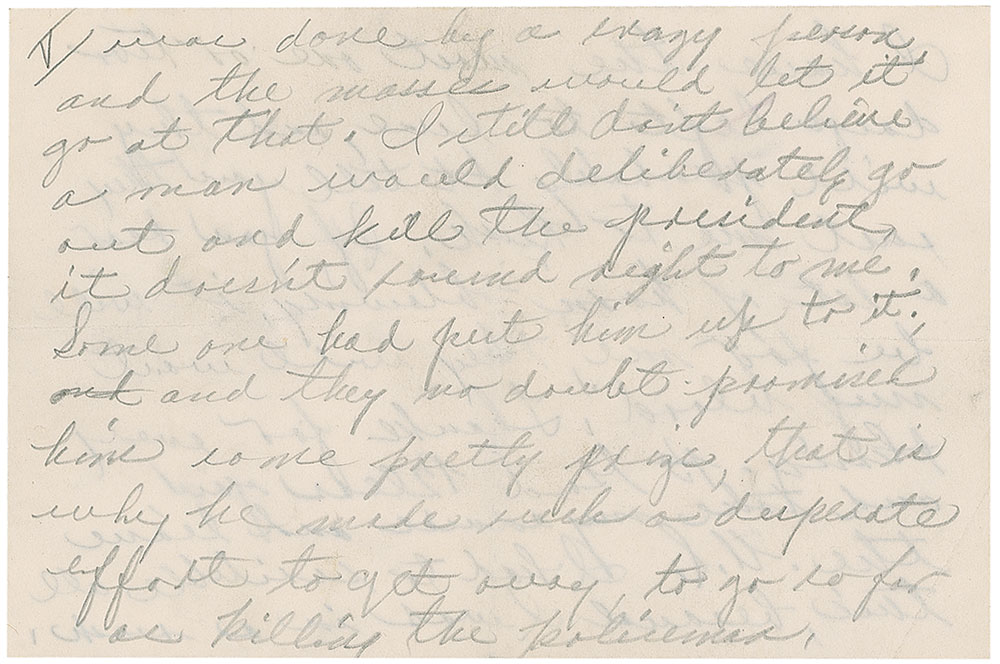 V/ was done by a crazy person,
and the masses would let it
go at that. I still don't believe
a man would deliberately go
out and kill the president,
it doesn't sound right to me.
Some one had put him up to it.
and and they no doubt promised
him some pretty prize, that is
why he made such a desperate
effort to get away, to go so far
as killing the policeman.